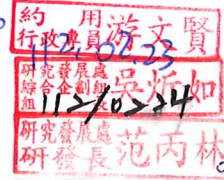 約用
行政專員 游文賢
112.02.23
研究發展處
綜合企劃組
組長 吳炘如
112/02/24
研究發展處
研發長 范丙林